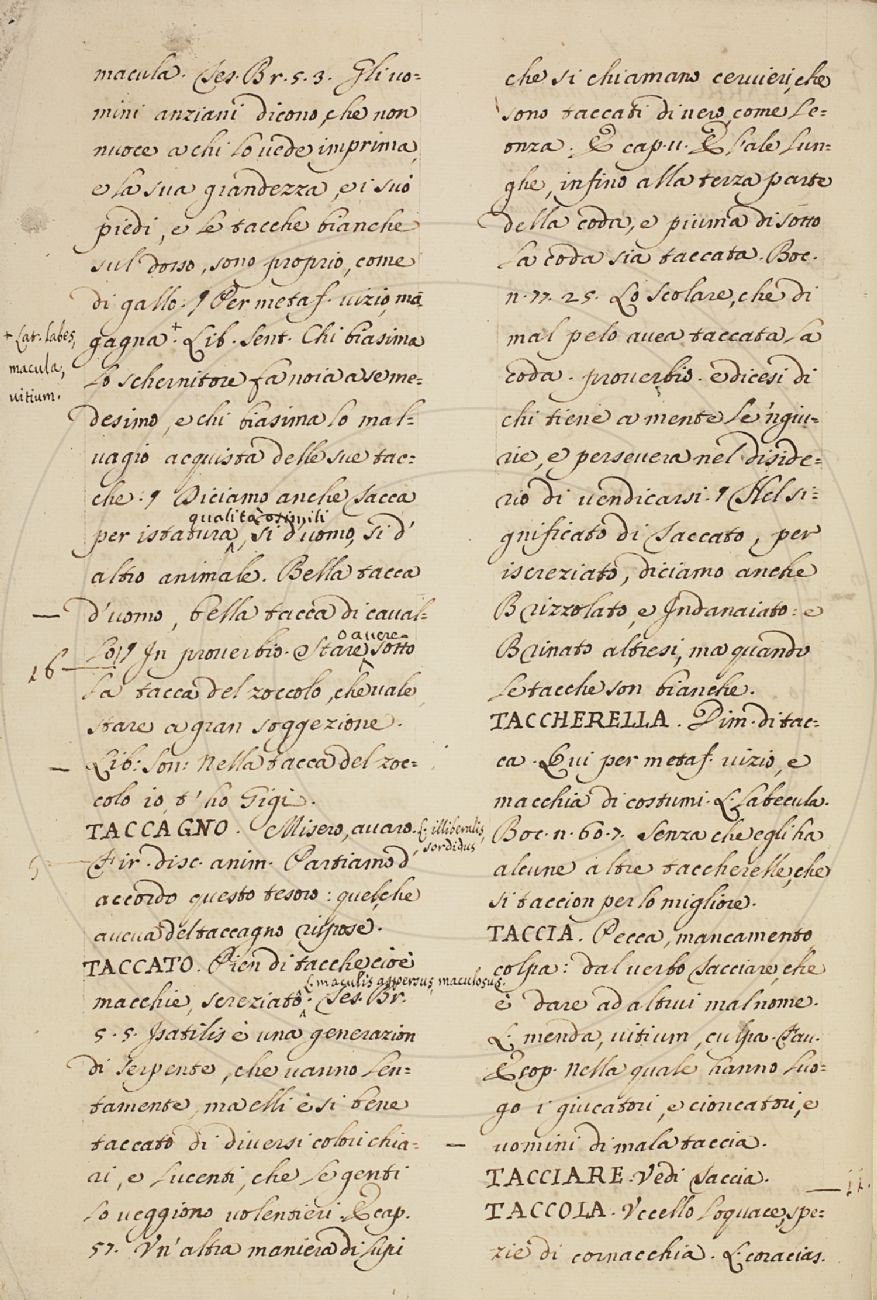 macula. Tes. Br. 5. 3. Gli uo=
mini anziani dicono, che non
nuoce a chi lo vede imprima,
e la sua grandezza, e i suo
piedi, e le tacche bianche
sul dosso, sono proprio, come
di gallo. ¶ Per metaf. vizio, mā
gagna +. Lib. Sent. Chi biasima
+ Lat. labes,
macula,
vitium.
lo schernitore fa noia a se me=
desimo, e chi biasima lo mal=
vagio acquista delle sue tac=
che. ¶ Diciamo anche Tacca
qualità, o simili
per istatura, sì d'uomo, sì d'
altro animale. Bella tacca
d'uomo, bella tacca di caval=
lo. ¶ In proverbio. Stare, o avere sotto
16
la tacca del zoccolo, che vale
stare a gran soggezione.
Lib: Son: Nella tacca del zoc=
colo io t'ho Gigi.
TACCAGNO. Misero, avaro. L. illiberalis,
sordidus
Fir. disc. anim. Partiamo d'
accordo questo tesoro: quel, che
aveva del taccagno rispose.
TACCATO. Pien di tacche cioè
L. maculis aspersus, maculosus.
macchie, screziato. Tes. Br.
5. 5. Isatilis è una generazion
di serpente, che vanno len=
tamente, ma elli è sì bene
taccato di diversi colori chia=
ri, e lucenti, che le genti
lo veggiono volentieri. E cap.
57. Un'altra maniera di lupi
che si chiamano cervieri, che
sono taccati di nero, come le=
onza. E cap. 11. E l'ale lun=
ghe, infino alla terza parte
della coda, e piuma di sotto
la coda sia taccata. Boc.
n. 77. 25. Lo Scolare, che di
mal pelo avea taccata la
coda. proverbio. e dicesi di
chi tiene a mente le 'ngiu=
rie, e persevera nel diside=
rio di vendicarsi. ¶ Nel si=
gnificato di Taccato, per
iscreziato, diciamo anche
Brizzolato, e Indanaiato: e
Brinato altresì, ma quando
le tacche son bianche.
TACCHERELLA. Dim. di tac=
ca. Qui per metaf. vizio, e
macchia di costumi. L. Labecula.
Boc. n. 60. 7. Senza che egli ha
alcune altre taccherelle, che
si taccion per lo migliore.
TACCIA. Pecca, mancamento
colpa: dal verbo Tacciare, che
è dare ad altrui mal nome.
L. menda, vitium, culpa. Fav.
Esop. Nella quale hanno luo=
go i giucatori, e cioncatori, e
uomini di mala taccia.
TACCIARE. Vedi Taccia.
TACCOLA. Uccello loquace, spe=
zie di cornacchia. L. coracias.